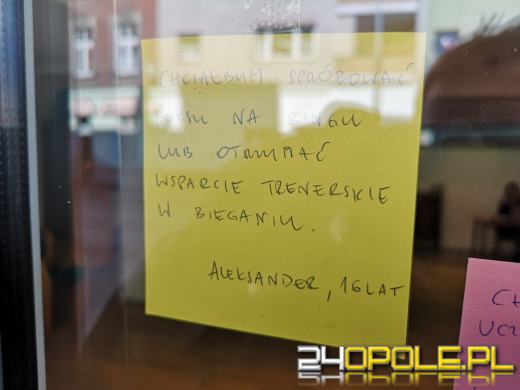 CHCIAŁBYM SPRÓBOWAĆ
BOKSU NA RINGU
LUB OTRZYMAĆ
WSPARCIE TRENERSKIE
W BIEGANIU.
ALEKSANDER, 16 LAT
CH
UCZ
24OPOLE.PL